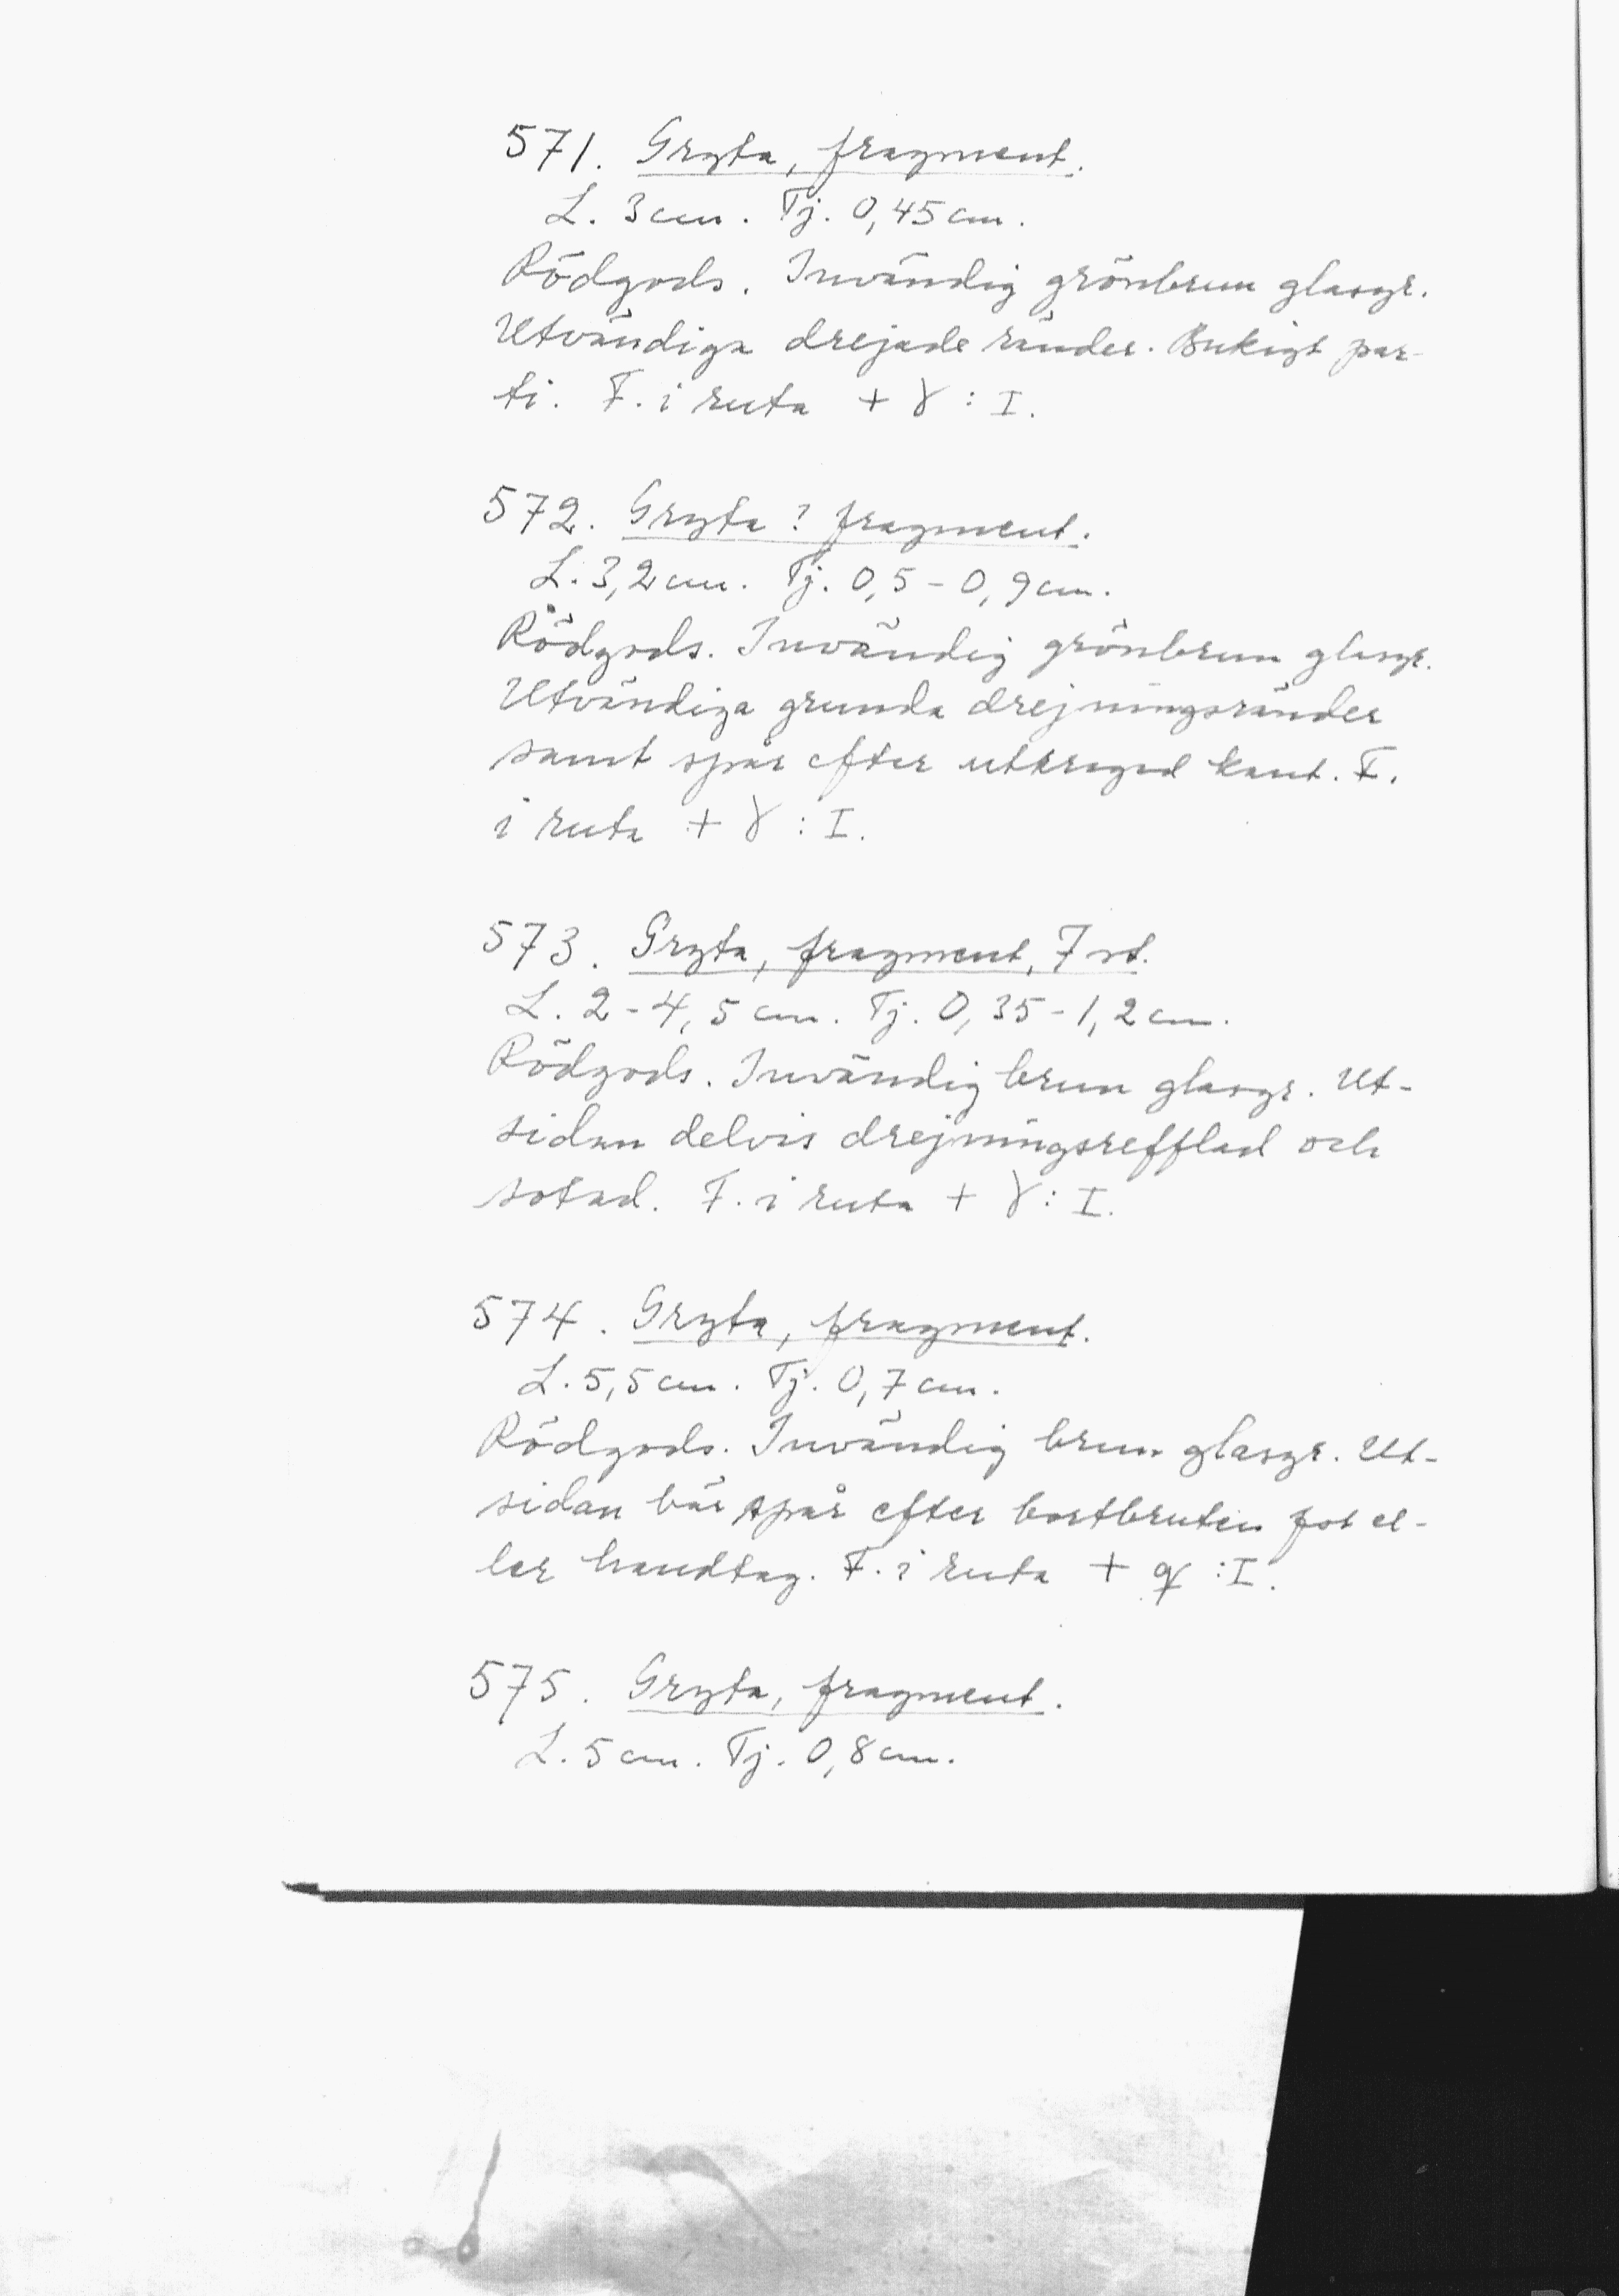 571. Gryta, fragment.
L. 3 cm. Tj. 0,45 cm.
Rödgods. Invändig grönbrun glasyr.
Utvändiga drejade ränder. Bukigt par-
ti. F. i ruta + γ : I.
572. Gryta? fragment.
L. 3,2 cm. Tj. 0,5 - 0,9 cm.
Rödgods. Invändig grönbrun glasyr.
Utvändiga grunda drejningsränder
samt spår efter utkragad kant. F.
i ruta + γ : I.
573. Gryta, fragment, 7 st.
L. 2 - 4,5 cm. Tj. 0,35 - 1,2 cm.
Rödgods. Invändig brun glasyr. Ut-
sidan delvis drejningsrefflad och
sotad. F. i ruta + γ : I.
574. Gryta, fragment.
L. 5,5 cm. Tj. 0,7 cm.
Rödgods. Invändig brun glasyr. Ut-
sidan bär spår efter bortbruten fot el-
ler handtag. F. i ruta + : I.
575. Gryta, fragment.
L. 5 cm. Tj. 0,8 cm.